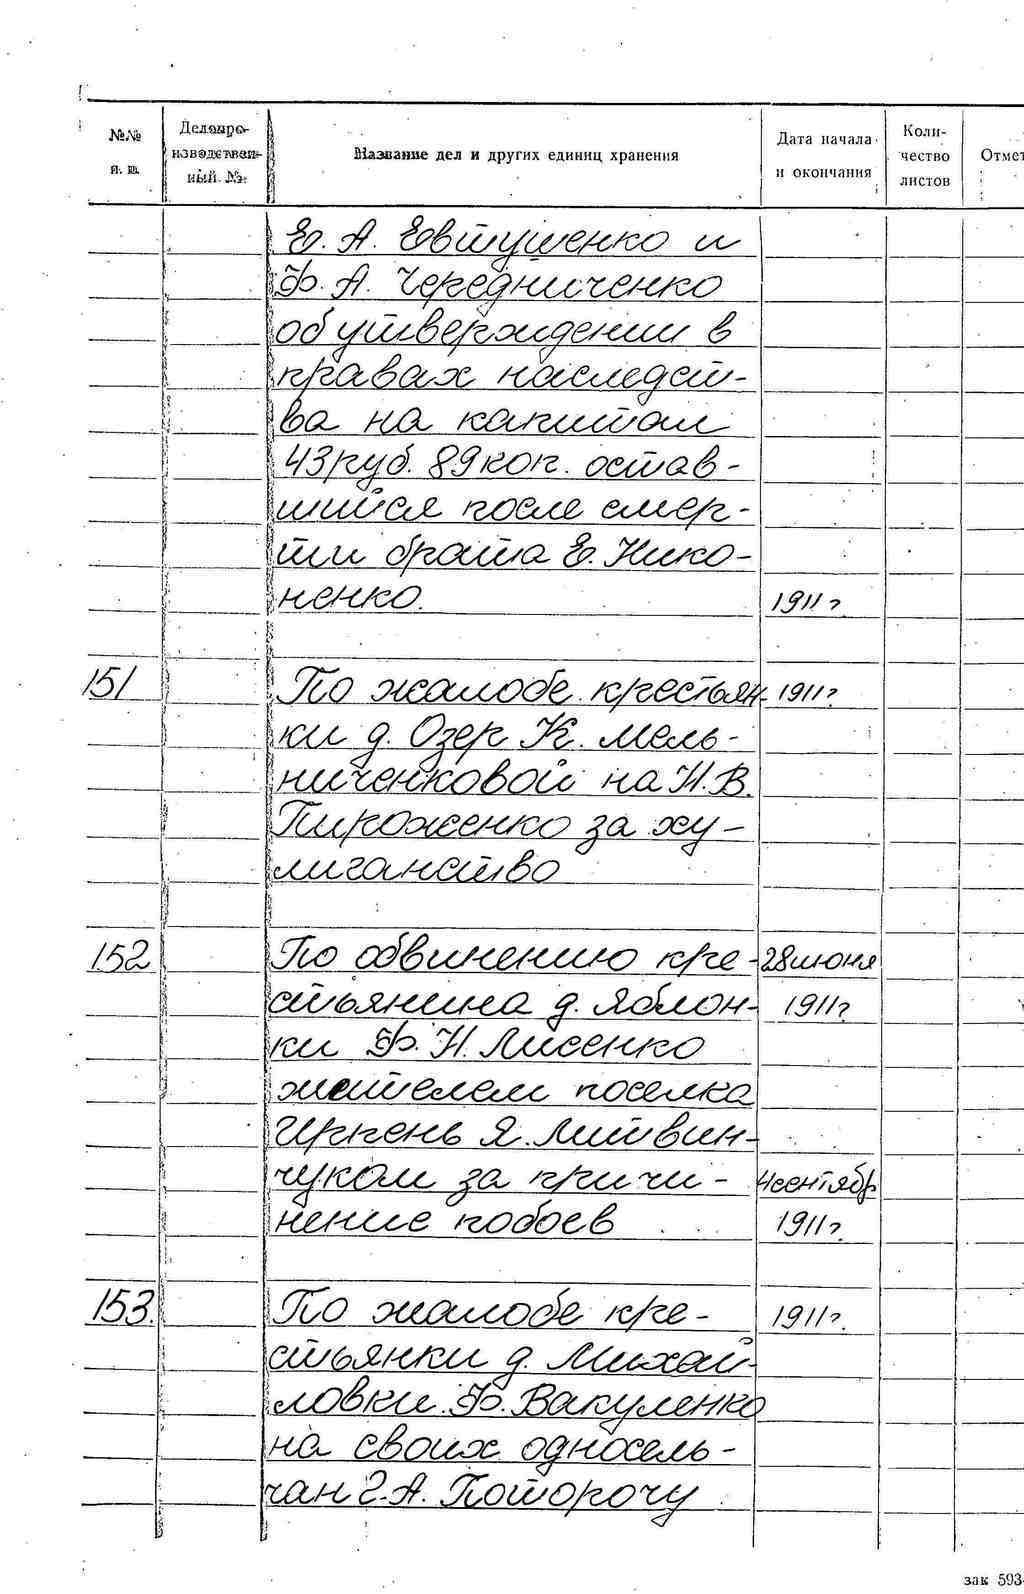 №№ п. п. Делопроизводственный № Название дел и других единиц хранения Дата начала и окончания Количество листов Отмет
Е. А. Евтушенко и
Ф. А. Чередниченко
об утверждении в
правах наследст-
ва на капитал
43 руб. 89 коп. остав-
шийся после смер-
ти брата Е. Нико-
ненко. 1911 г
151 По жалобе крестьян- 1911 г
ки д. Озер К. Мель-
ниченковой на И. В.
Пироженко за ху-
лиганство
152 По обвинению кре- 28 июня
стьянина д. Яблон- 1911 г
ки Ф. И. Лисенко
жителем поселка
Ирпень Я. Литвин-
чуком за причи- 4 сентябр
нение побоев 1911 г.
153. По жалобе кре- 1911 г.
стьянки д. Михай-
ловки Ф. Вакуленко
на своих односель-
чан Г. А. Поторочу
зак 593-